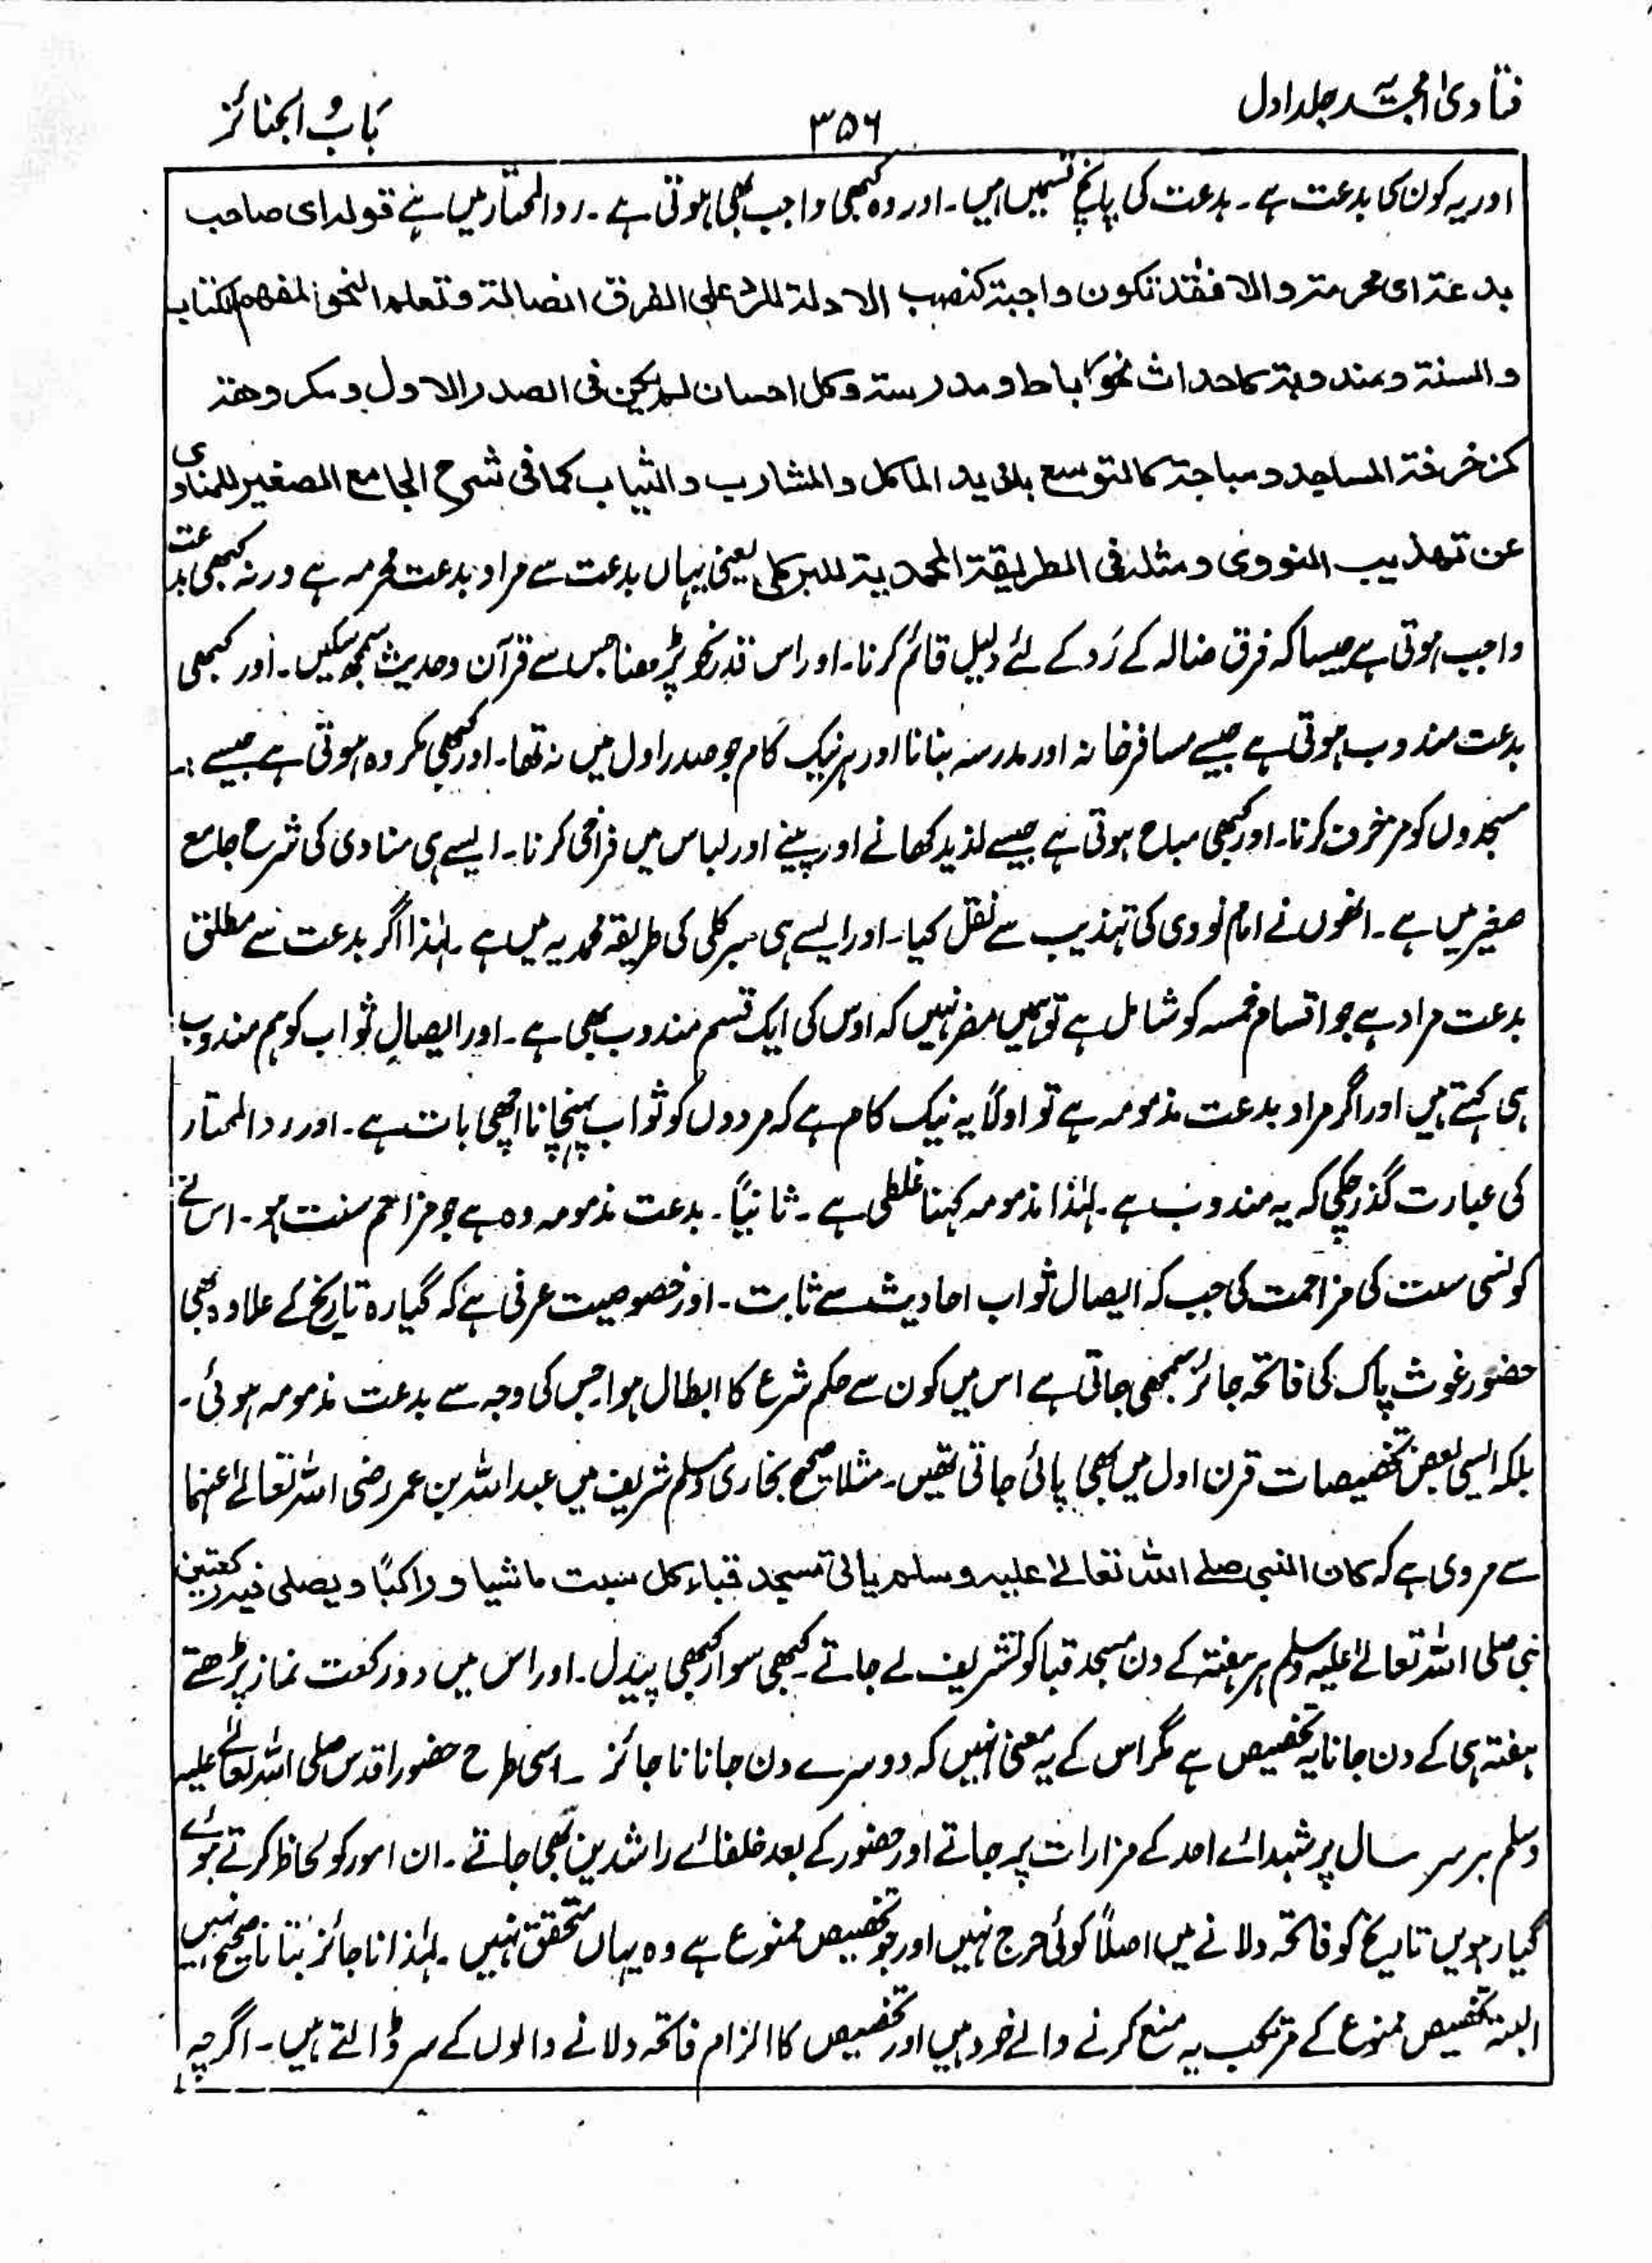 فتاویٰ امجدیہ جلد اول
۳۵۶
باب الجنائز
اور یہ کون کا بدعت ہے۔ بدعت کی پانچ قسمیں ہیں۔ اور وہ کبھی واجب بھی ہوتی ہے۔ ردالمحتار میں ہے قولہ ای صاحب
بدعۃ ای محرمۃ والا فقد تکون واجبۃ کنصب الادلۃ للرد علی الفرق الضالۃ وتعلم النحو المفھم للکتاب
والسنۃ ومندوبۃ کاحداث نحو رباط ومدرسۃ وکل احسان لم یکن فی الصدر الاول ومکروھۃ
کزخرفۃ المساجد ومباحۃ کالتوسع بلذیذ الماکل والمشارب والثیاب کما فی شرح الجامع الصغیر للمناوی
عن تھذیب النووی ومثلہ فی الطریقۃ المحمدیۃ للبرکلی یعنی یہاں بدعت سے مراد بدعت محرمہ ہے ورنہ کبھی بدعت
واجب ہوتی ہے جیسا کہ فرق ضالہ کے رَد کے لئے دلیل قائم کرنا۔ اور اس قدر نحو پڑھنا جس سے قرآن وحدیث سمجھ سکیں۔ اور کبھی
بدعت مندوب ہوتی ہے جیسے مسافر خانہ اور مدرسہ بنانا اور ہر نیک کام جو صدر اول میں نہ تھا۔ اور کبھی مکروہ ہوتی ہے جیسے :۔
مسجدوں کو مزخرف کرنا۔ اور کبھی مباح ہوتی ہے جیسے لذیذ کھانے اور پینے اور لباس میں فراخی کرنا۔ ایسے ہی مناوی کی شرح جامع
صغیر میں ہے۔ انھوں نے امام نووی کی تہذیب سے نقل کیا۔ اور ایسے ہی برکلی کی طریقہ محمدیہ میں ہے۔ لہٰذا اگر بدعت سے مطلق
بدعت مراد ہے جو اقسام خمسہ کو شامل ہے تو ہمیں مضر نہیں کہ اوس کی ایک قسم مندوب بھی ہے۔ اور ایصالِ ثواب کو ہم مندوب
ہی کہتے ہیں اور اگر مراد بدعت مذمومہ ہے تو اولاً یہ نیک کام ہے کہ مردوں کو ثواب پہنچانا اچھی بات ہے۔ اور ردالمحتار
کی عبارت گذر چکی کہ یہ مندوب ہے۔ لہٰذا مذمومہ کہنا غلطی ہے۔ ثانیاً۔ بدعت مذمومہ وہ ہے جو مزاحم سنت ہو۔ اس نے
کونسی سنت کی مزاحمت کی جب کہ ایصال ثواب احادیث سے ثابت۔ اور خصوصیت عرفی ہے کہ گیارہ تاریخ کے علاوہ بھی
حضور غوث پاک کی فاتحہ جائز سمجھی جاتی ہے اس میں کون سے حکم شرع کا ابطال ہوا جس کی وجہ سے بدعت مذمومہ ہوئی۔
بلکہ ایسی بعض تخصیصات قرن اول میں بھی پائی جاتی تھیں۔ مثلا صحیح بخاری ومسلم شریف میں عبداللہ بن عمر رضی اللہ تعالےٰ عنہما
سے مروی ہے کہ کان النبی صلے اللہ تعالےٰ علیہ وسلم یاتی مسجد قباء کل سبت ماشیا و راکبًا ویصلی فیہ رکعتین
نبی صلی اللہ تعالےٰ علیہ وسلم ہر ہفتہ کے دن مسجد قبا کو تشریف لے جاتے۔ کبھی سوار کبھی پیدل۔ اور اس میں دو رکعت نماز پڑھتے
ہفتہ ہی کے دن جانا یہ تخصیص ہے مگر اس کے یہ معنی نہیں کہ دوسرے دن جانا ناجائز۔ اسی طرح حضور اقدس صلی اللہ تعالےٰ علیہ
وسلم ہر سر سال پر شہدائے احد کے مزارات پر جاتے اور حضور کے بعد خلفائے راشدین بھی جاتے۔ ان امور کو لحاظ کرتے ہوئے
گیارہویں تاریخ کو فاتحہ دلانے میں اصلاً کوئی حرج نہیں اور جو تخصیص ممنوع ہے وہ یہاں متحقق نہیں۔ لہٰذا ناجائز بتانا صحیح نہیں
البتہ تخصیص ممنوع کے مرتکب یہ منع کرنے والے خود ہیں اور تخصیص کا الزام فاتحہ دلانے والوں کے سر ڈالتے ہیں۔ اگرچہ